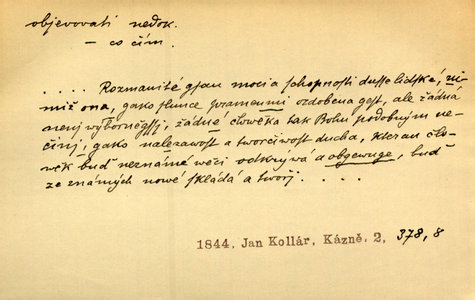 objevovati nedok.
— co čím.
. . . . Rozmanité gsau moci a schopnosti dusse lidské, ni-
miž ona, gako slunce paprsky ozdobena gest, ale žádná
nenj výborněgssj, žádné člowěka tak Bohu podobným ne-
činj, gako nalezawost a tworčiwost ducha, kterau člo-
wěk buď neznámé wěci odkrýwá a obgewuge, buď
ze známých nowé skládá a tworj. . . . .
1844, Jan Kollár, Kázně, 2, 378, 8